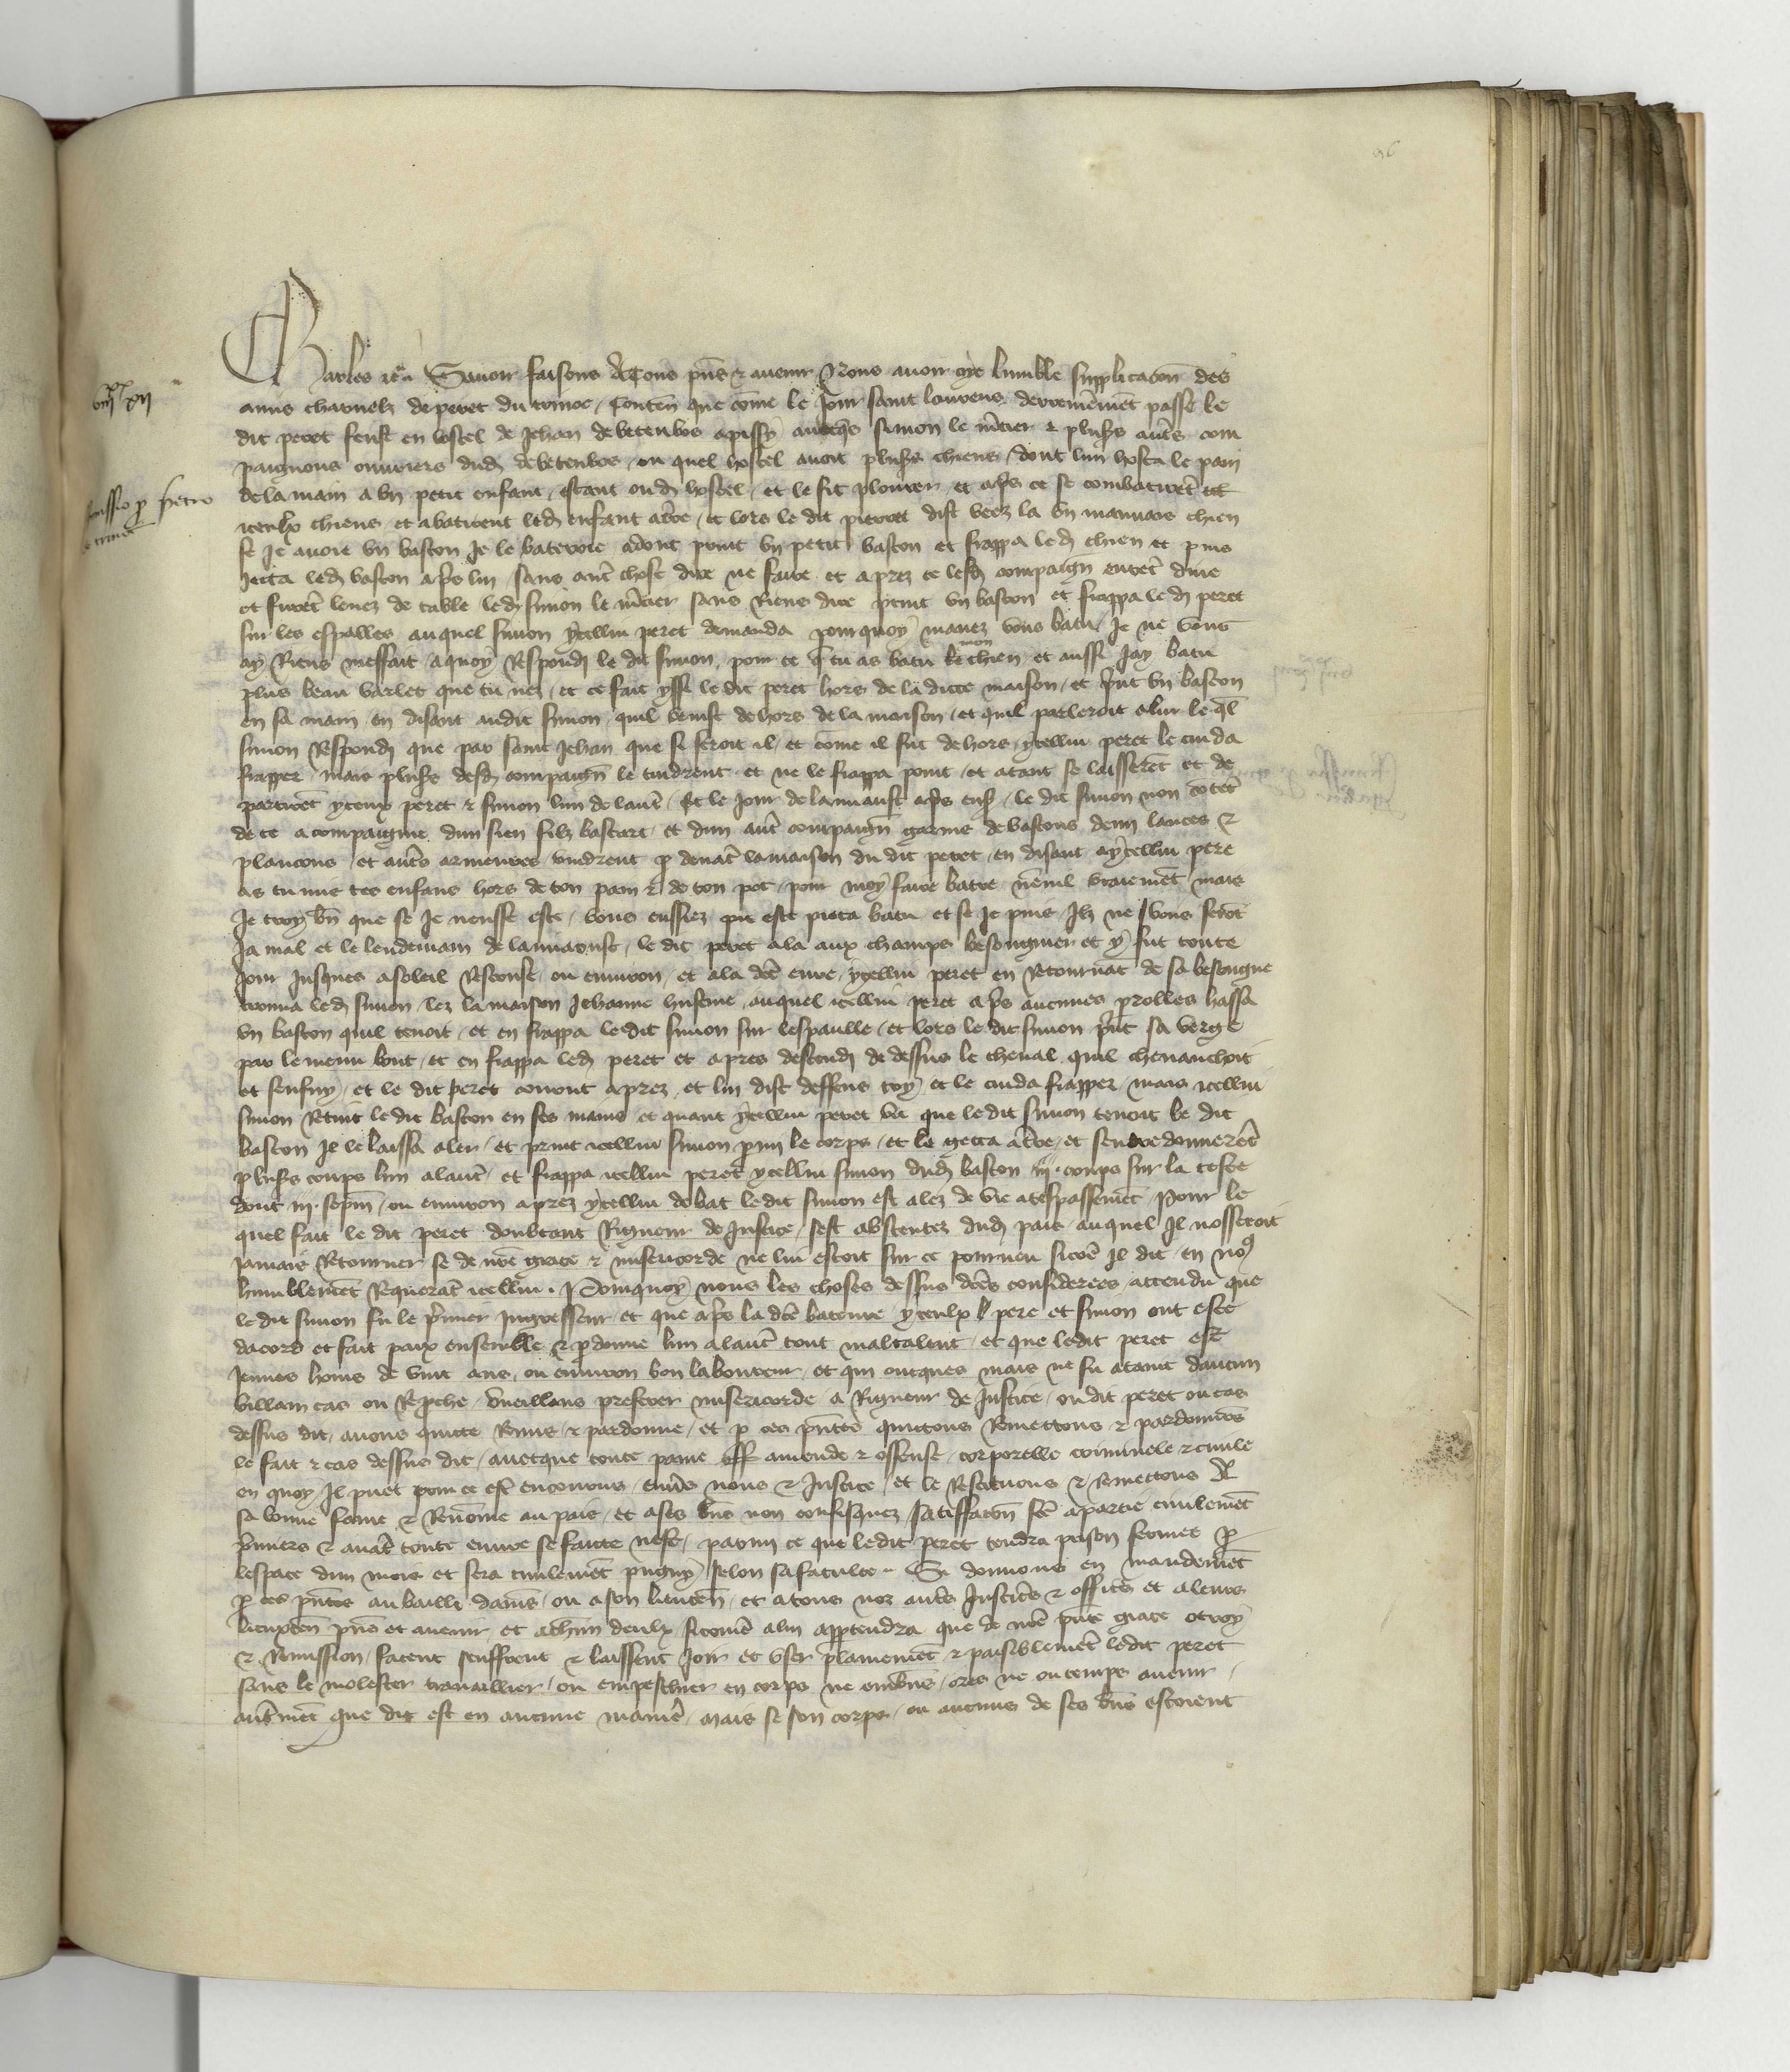 Charles etc. Savoir faisons a tous pns & avenir Nous avoir oye lumble supplicacon des
amis charnelz de peret du Conten que come le Jour saint lourens derrenieremet passe le
dit peret feust en lostel de Jehan debetenbos apissy avecqs simon le mcier & plusrs autres com
paignons ouvriers dud debetenbos, ou quel hostel avoit plusrs chiens, dont lun hosta le pain
de la main a un petit enfant, estant oud hostel, et le fit plourer, et aprs ce se combatiret
iceulx chiens, et abatirent led enfant a tre, et lors le dit pierret dist veez la un mauvais chien
se Je avoie un baston Je le bateroie adonc print un petit baston et frappa led chien et puis
jecta led baston aprs lui, sans autre chose dire ne faire et aprez ce lesd compaign euret disne
et furet levez de table led simon le mcier sans Riens dire print un baston et frappa led peret
sur les espaulles, auquel simon ycellui peret demanda pourquoy mavez vous batu, Je ne vous
ay Riens meffait, aquoy Respondi le dit simon, pour ce q tu as batu mon chien, et aussi Jay batu
plus beau varlet que tu nez, et ce fait yssi le dit peret hors de la dicte maison, et print un baston
en sa main, en disant audit simon, quil venist dehors de la maison, et quil parleroit a lui le ql
simon Respondi que par saint Jehan que si feroit il, et come il fut dehors, ycellui peret le cuida
frapper, mais plusrs desd compaign le tindrent, et ne le frappa point, et atant se laisseret et de
partiret yceux peret & simon lun de laut, Et le Jour de la miaoust aprs ens, le dit simon non cotet
de ce acompaigne dun sien filz bastart, et dun aut compaign garnis de bastons demi lances &
plancons, et autrs armeures vindrent p devat la maison du dit peret, en disant a ycellui pere
as tu mis tes enfans hors de ton pain & de ton pot, pour moy faire batre nennil vraiemet mais
Je croy bn que se Je neusse este, vous eussiez este pieca batu et se Je puis, Ilz ne vous feront
Ja mal et le lendemain de la miaoust, le dit peret ala aux champs besongnier et y fut toute
Jour Jusques a soleil Resconse, ou environ, et a la dce eure, ycellui peret en Retournat de sa besongne
trouva led simon, lez la maison Jehanne, auquel icellui peret aprs aucunes prolles haussa
un baston quil tenoit, et en frappa ledit simon sur lespaulle, et lors le dit simon print sa verge
par le menu bout, et en frappa led peret et apres descendi de dessus le cheval quil chevauchoit
et senfuy, et le dit peret courut aprez, et lui dist deffens toy, et le cuida frapper, mais icellui
simon Retint ledit baston en ses mains, et quant ycellui peret vit que ledit simon tenoit le dit
baston Il le laissa aler, et print icellui simon pmi le corps, et le getta a tre, et sentredonneret
plusrs coups lun a laut, et frappa icellui peret ycellui simon dud baston iij. coups sur la teste
dont iij. sepm, ou environ aprez ycellui debat ledit simon est alez de vie a trespassemet, Pour le
quel fait le dit peret doubtant Rigueur de Justice, sest absentez dud pais, auquel Il nosseroit
jamais Retourner se de nre grace & misericorde ne lui estoit sur ce pourveu sicome Il dit, en no9
humblemet Requerat icellui. Pourquoy nous les choses dessus dces considerees, attendu que
le dit simon fu le prmier Ingresseur, et que aprs la dce bateure, yceulx pere et simon ont este
dacord et fait paix ensemble & pdonne lun a laut tout maltalent, et que ledit peret est
Jeunes homs de vint ans, ou environ bon laboureur, et qui oncques mais ne fu ataint daucun
villain cas ou Reproche, Vueillans preferer misericorde a Rigueur de Justice, oudit peret ou cas
dessus dit, avons quicte Remis, & pardonne, et p ces pntes quictons Remettons & pardonnons
le fait & cas dessus dit, avecque toute paine amende & offense, corporelle criminele & civile
en quoy Il puet pour ce est encourus, envs nous & Justice, et le Restituons & Remettons a
sa bonne fame & Renomee au pais, et a ses bns non confisquez, satiffacon fce a partie civilemet
prmiers & avat toute euvre se faicte nest, parmi ce que ledit peret tendra prison fermee p
lespace dun mois et sera civilemet pugny selon sa faculte. Si donnons en mandemet
p ces pntes au bailli damis, ou a son lieuten, et a tous noz autrs Justicrs & officrs et a leurs
lieuxten pns et avenir, et a chun deulx sicome a lui apptendra que de nre pnte grace otroy
& Remission, facent seuffrent & laissent Joir et user plainemet & paisiblemet ledit peret
sans le molester travaillier, ou empeschier en corps ne en bns, ores ne ou temps avenir,
autremet que dit est en aucune maniere, mais se son corps, ou aucuns de ses bns estoient